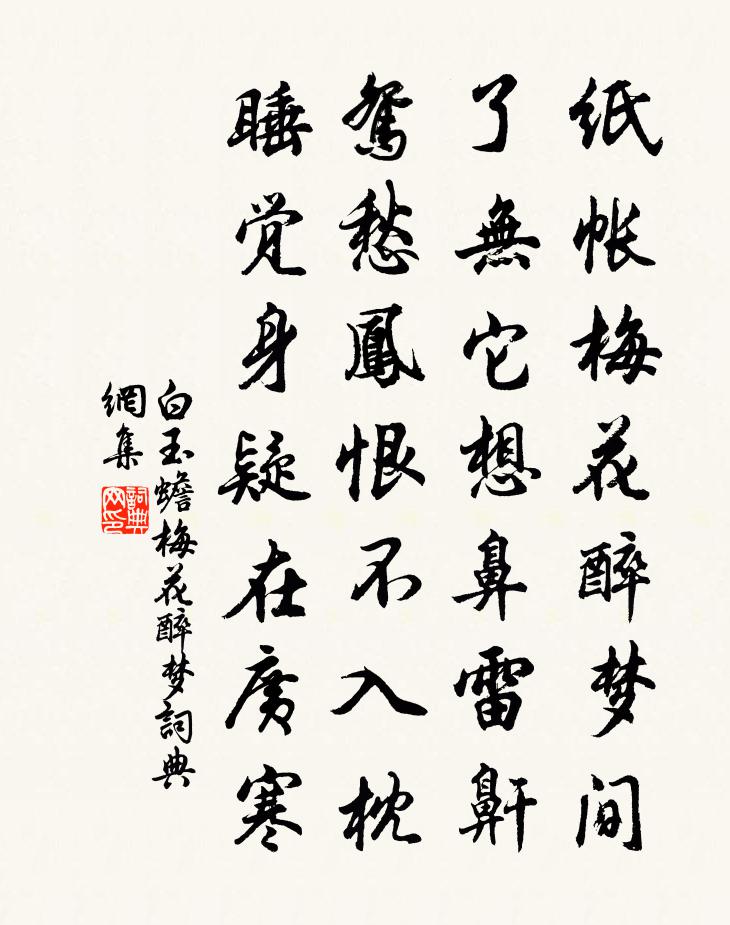 纸帐梅花醉梦间
了無它想鼻雷鼾
鴛愁鳳恨不入枕
睡觉身疑在廣寒
白玉蟾梅花醉梦詞典
網集
詞典网印